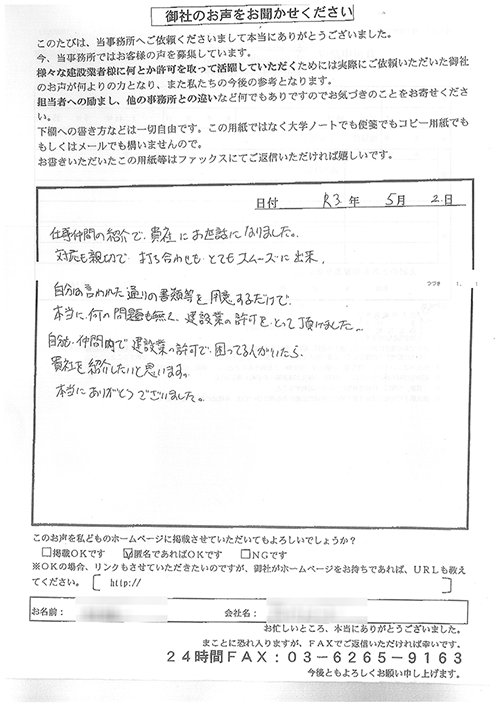 御社のお声をお聞かせください
このたびは、当事務所へご依頼くださいまして本当にありがとうございました。
今、当事務所ではお客様の声を募集しています。
様々な建設業者様に何とか許可を取って活躍していただくためには実際にご依頼いただいた御社
のお声が何よりの力となり、また私たちの今後の参考となります。
担当者への励まし、他の事務所との違いなど何でもありですのでお気づきのことをお寄せくださ
い。
下欄への書き方などは一切自由です。この用紙ではなく大学ノートでも便箋でもコピー用紙でも
もしくはメールでも構いませんので。
お書きいただいたこの用紙等はファックスにてご返信いただければ嬉しいです。
日付 R3 年 5月 2日
仕事仲間の紹介で、貴社にお世話になりました。
対応も親切で、打ち合わせもとてもスムーズに出来、
自分は言われた通りの書類等を用意するだけで、
本当に何の問題も無く、建設業の許可をとって頂けました。
自分も、仲間内で建設業の許可で困ってる人がいたら、
貴社を紹介したいと思います。
本当にありがとうございました。
このお声を私どものホームページに掲載させていただいてもよろしいでしょうか？
□掲載OKです ☑匿名であればOKです □NGです
※OKの場合、リンクもさせていただきたいのですが、御社がホームページをお持ちであれば、URLも教え
てください。 [ http:// ]
お名前： 会社名：
お忙しいところ、本当にありがとうございました。
まことに恐れ入りますが、FAXでご返信いただければ幸いです。
24時間FAX：03-6265-9163
今後ともよろしくお願い申し上げます。